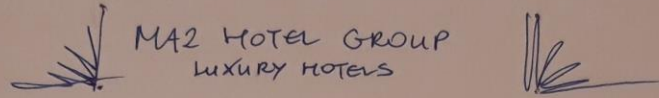 MA2 HOTEL GROUP
LUXURY HOTELS